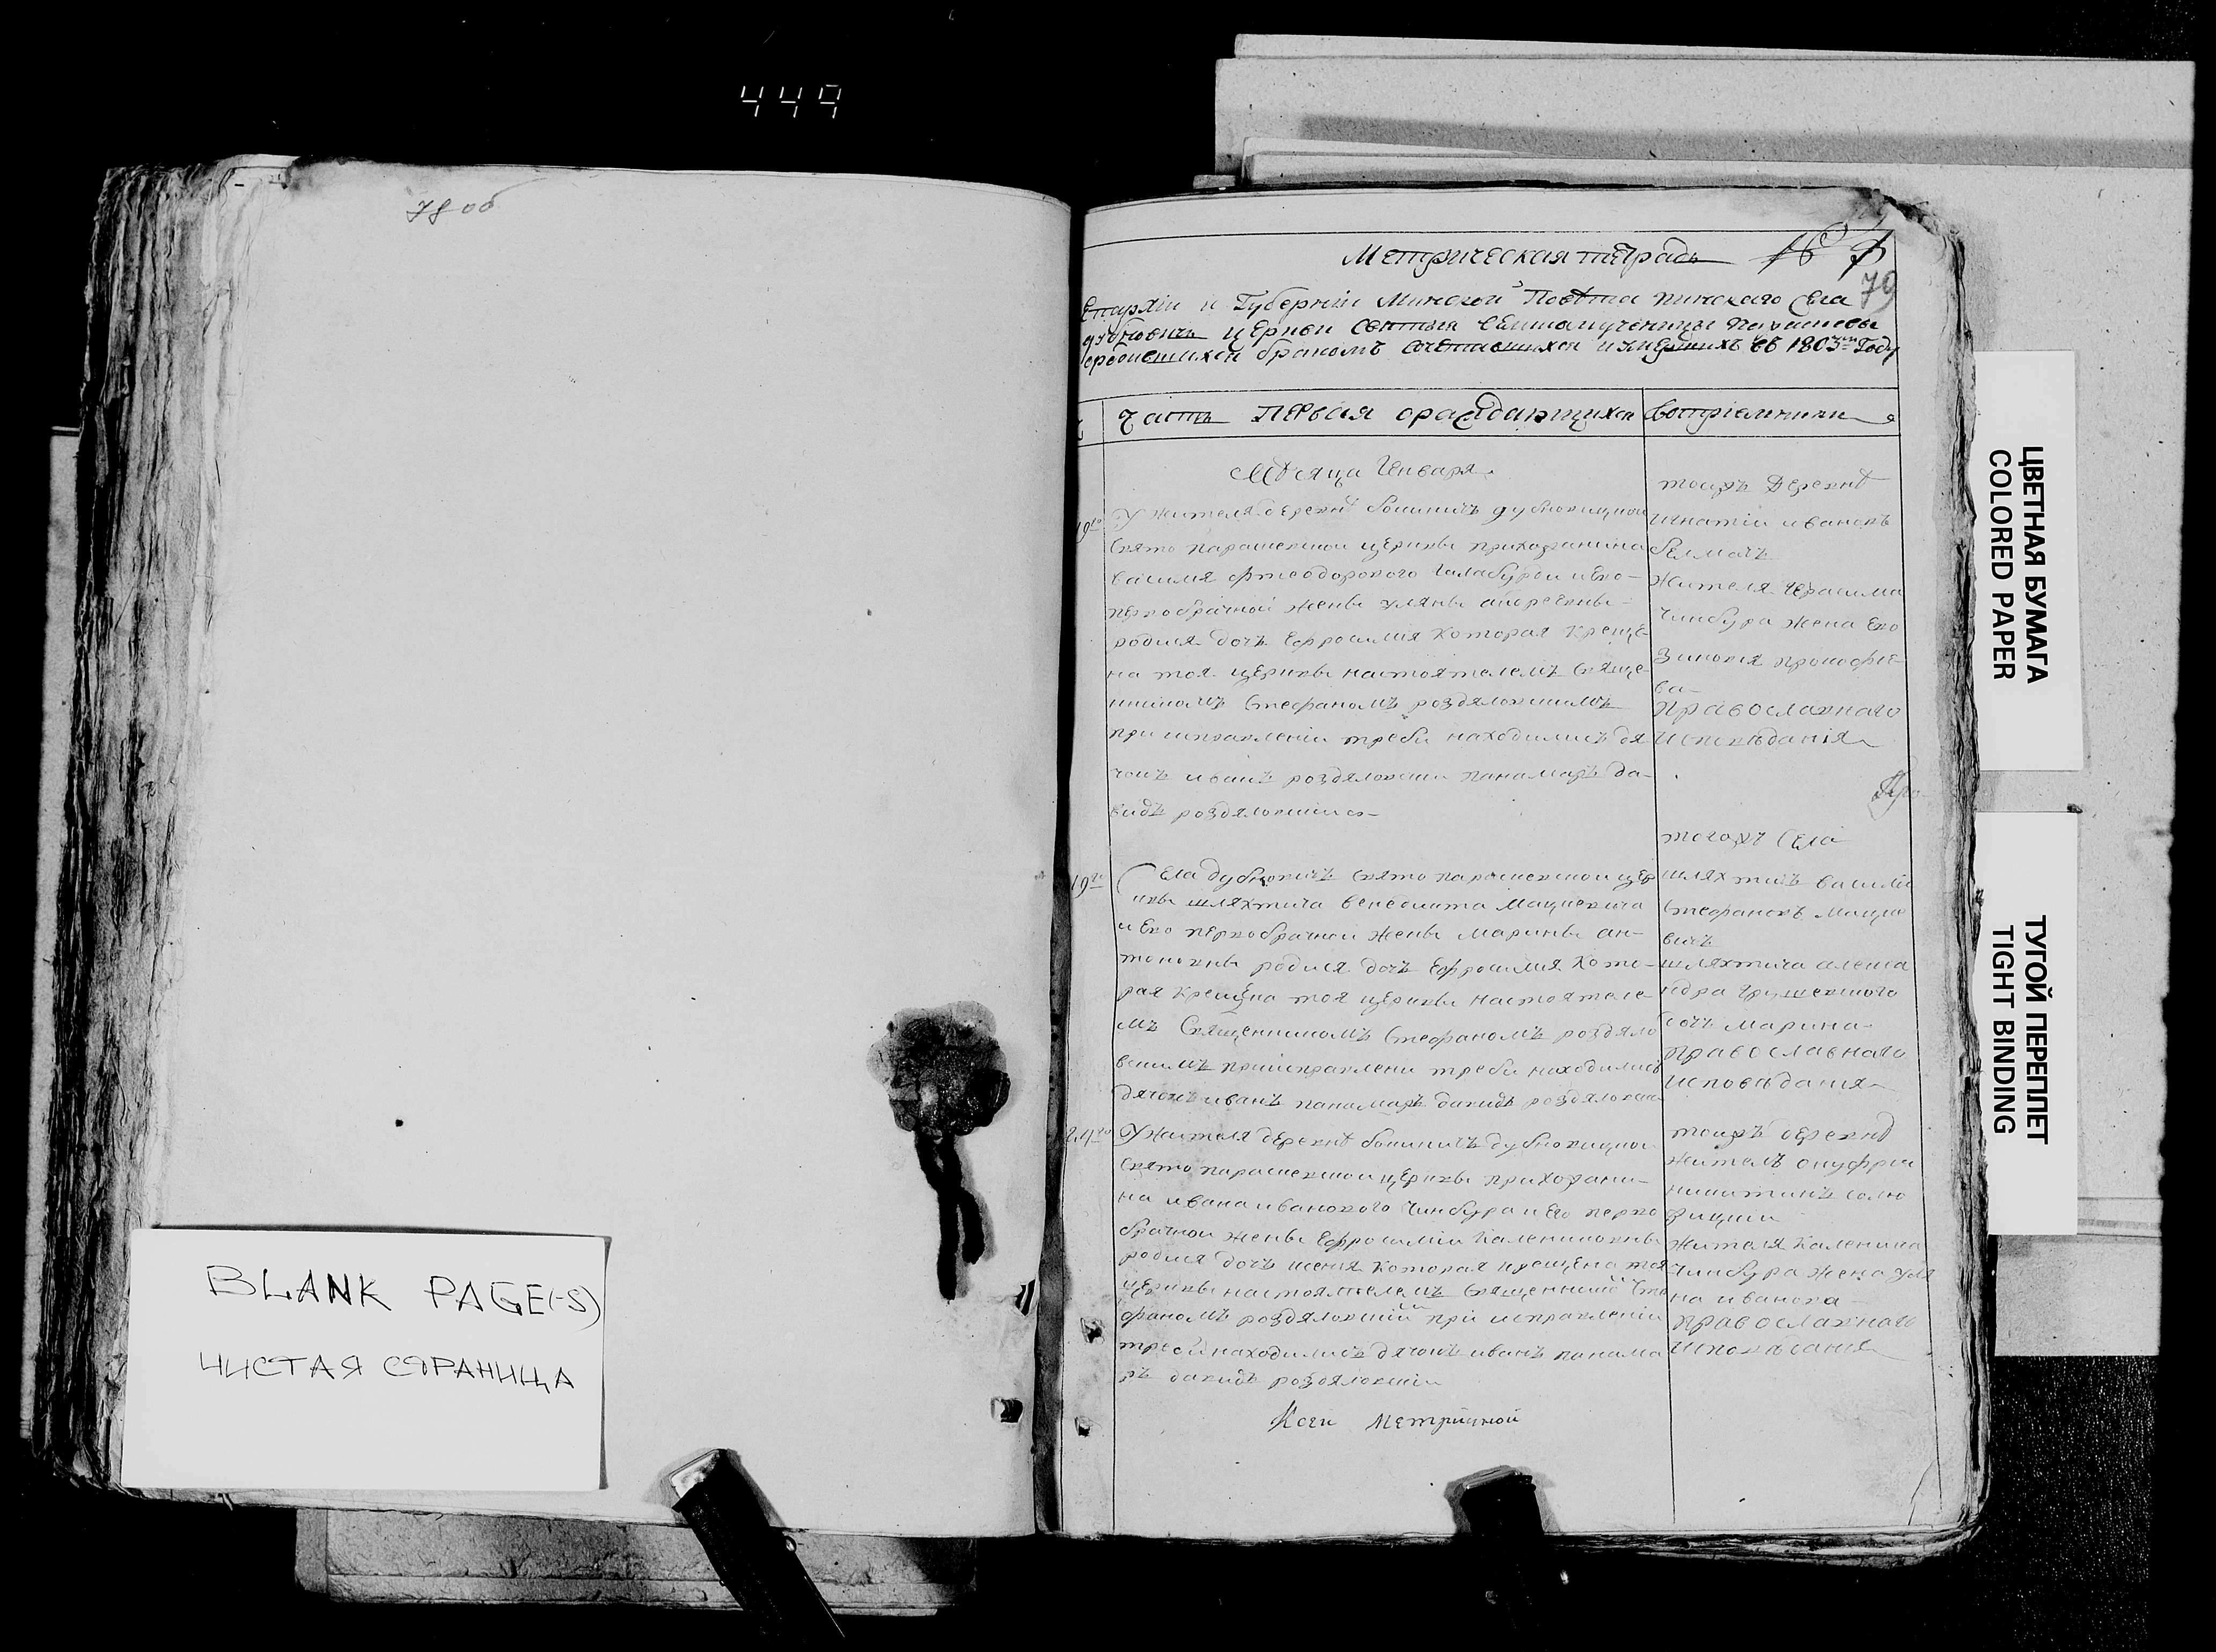 449
78 об
BLANK PAGE(-S)
ЧИСТАЯ СТРАНИЦА
Метрическая тетрадь
79
Епархіи и Губерніи Минской Повѣта Пинскаго Села
церкви Святыя Великомученицы Параскевы
бракомъ сочетавшихся и умершихъ въ 1803м Году
Часть первая ораждающихся
воспріемники
Мѣсяца Генваря
19го
У жителя деревнѣ дубновицкой
свято параскевской церкви прихожанина
василя фтеодорового и ево
первобрачной жены уляны андреевны
родися дочь Ефросимія которая креще-
на тоя церкви настоятелемъ Свяще-
нникомъ Стефаномъ роздяловскимъ
при исправленіи требы находились дя
чокъ иванъ роздяловски панамаръ да-
видъ роздяловски
тоижъ деревнѣ
игнатіи ивановъ
жителя герасима
чинбура жена ево
зиновія прокофіе
ва
православнаго
исповѣданія
19го
Села дубновичъ свято параскевской цер
кви шляхтича венедикта мацкевича
и ево первобрачной жены марины ан-
тоновны родися дочь Ефросимия кото-
рая крещена тоя церкви настоятеле-
мъ Священникомъ Стефаномъ роздяло
вскимъ приисправлени требы находились
дячокъ иванъ панамаръ давидъ роздяловски
тогожъ Села
шляхтичъ василій
Стефановъ мацке
вичъ
шляхтича алекса
ндра грушевского
дочь марина
православнаго
исповѣдания
24го
У жителя деревнѣ дубновицкой
свято параскевской церкви прихожани-
на ивана иванового чинбура и его перво
брачной жены Ефросимии калениковны
родися дочь ксения которая крещена тоя
церкви настоятелемъ Священникомъ Сте
фаномъ роздяловскимъ при исправленіи
требы находились дячокъ иванъ панама
ръ давидъ роздяловски
тоижъ деревнѣ
житель онуфрии
никитинъ
жителя каленика
чинбура жена уля
на иванова
православнаго
исповѣдания
Коеи метричной
ЦВЕТНАЯ БУМАГА
COLORED PAPER
ТУГОЙ ПЕРЕПЛЕТ
TIGHT BINDING